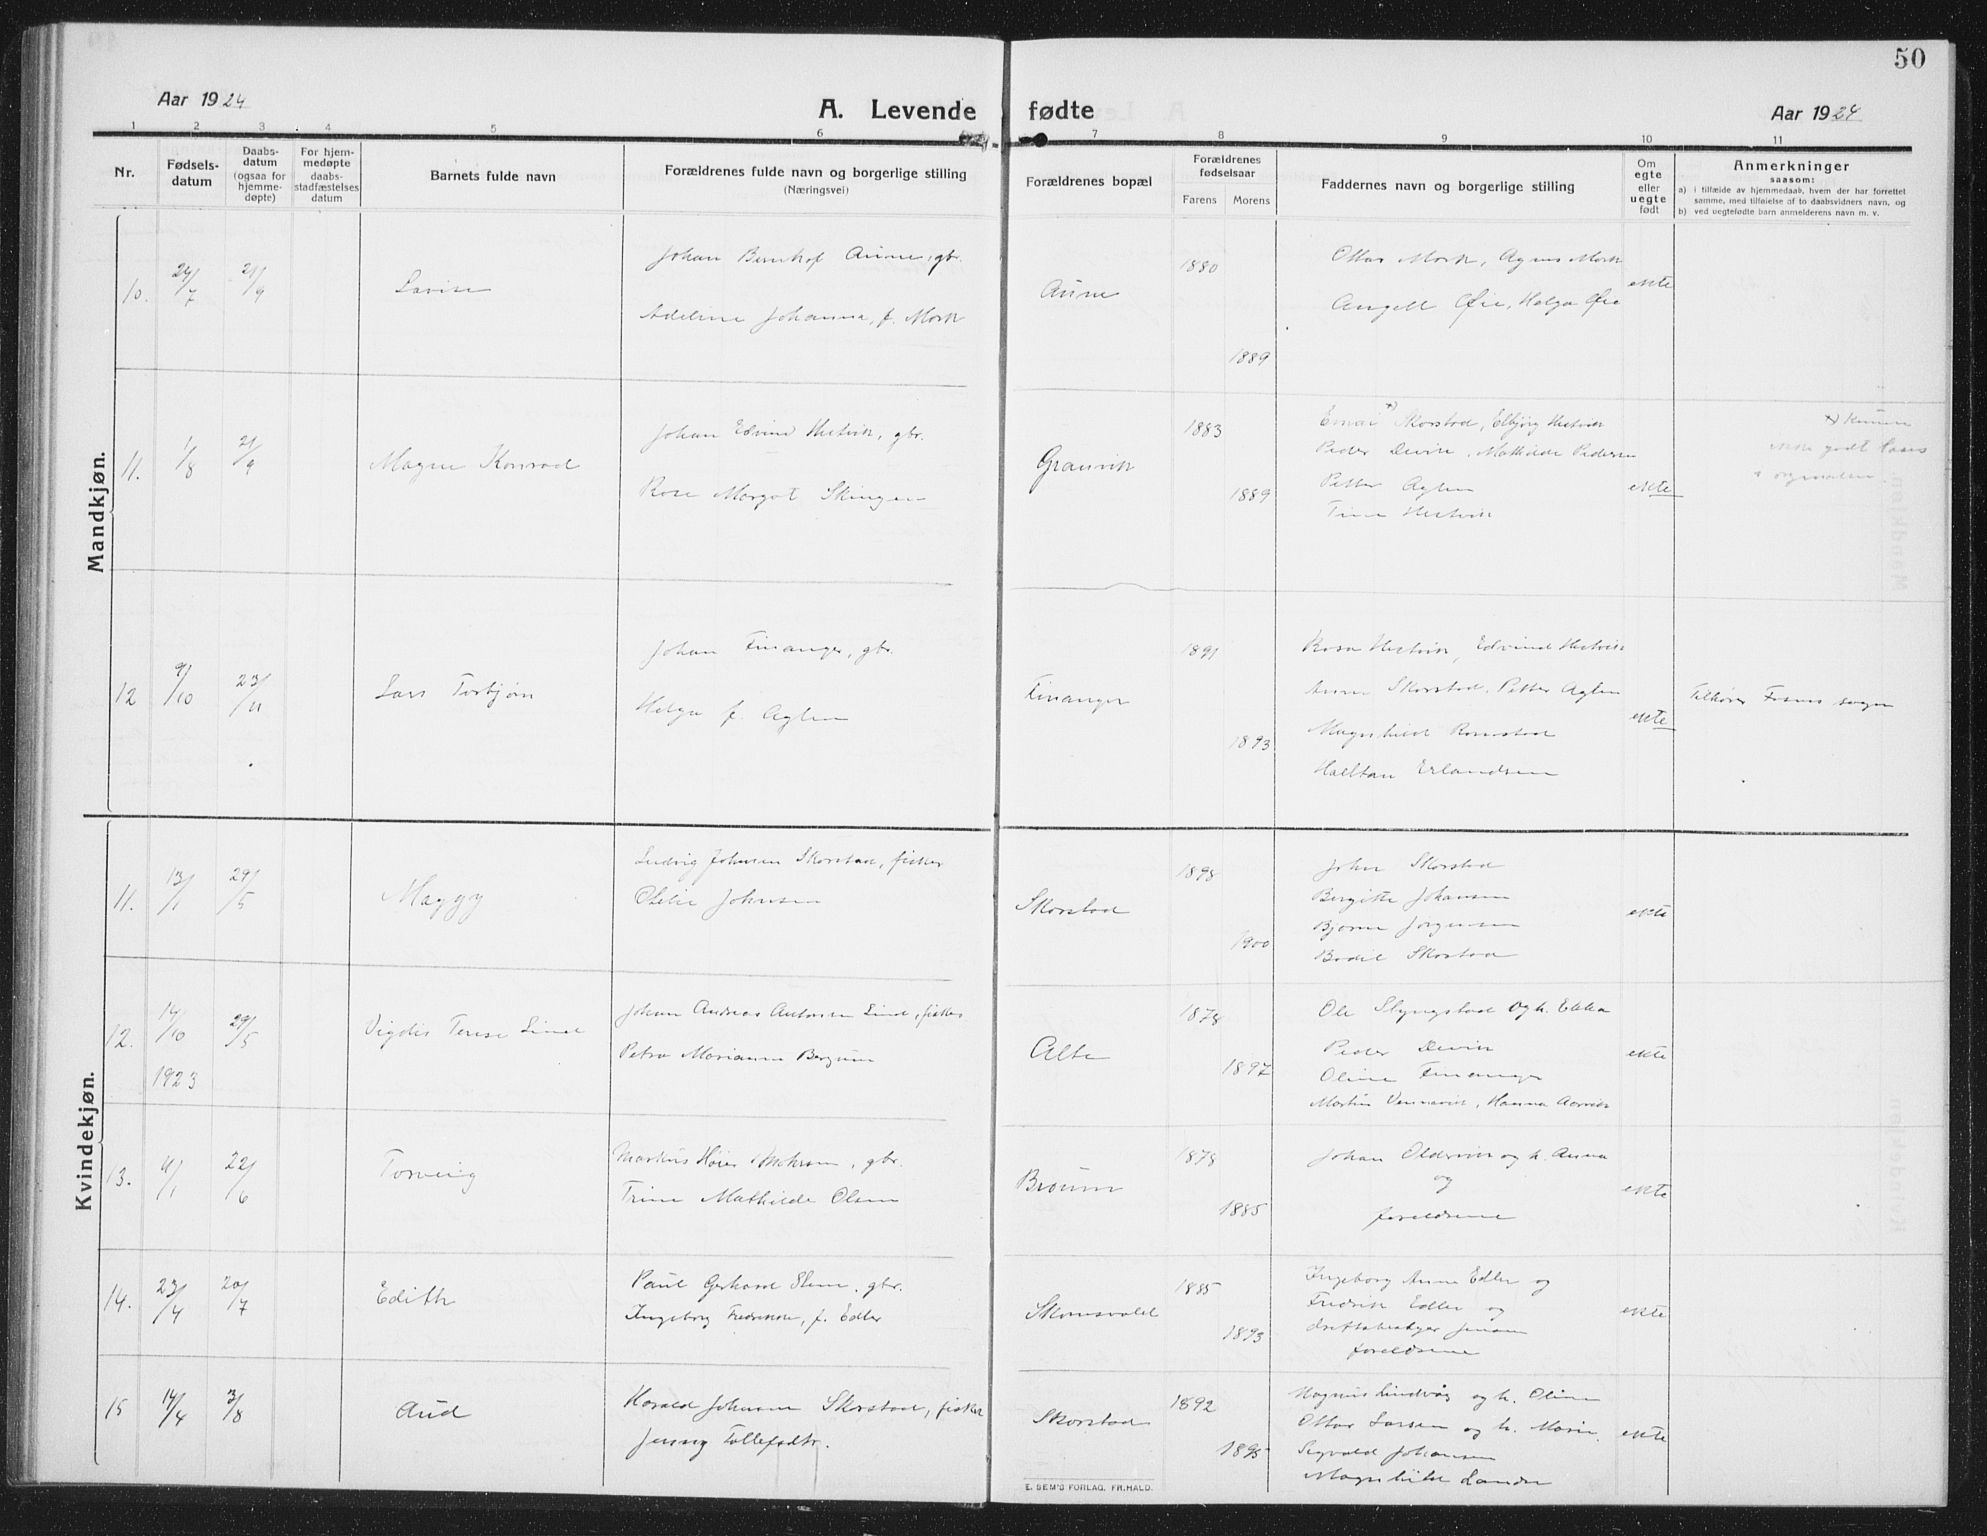 50
Aar 1924
A. Levende fødte
Aar 1924
1 2 3 4 5 6 7 8 9 10 11
Nr.
Fødsels-
datum
Daabs-
datum
(ogsaa for
hjemme-
døpte)
For hjem-
medøpte
daabs-
stadfæstelses
datum
Barnets fulde navn
Forældrenes fulde navn og borgerlige stilling
(Næringsvei)
Forældrenes bopæl
Forældrenes
fødselsaar
Farens Morens
Faddernes navn og borgerlige stilling
Om
egte
eller
uegte
født
Anmerkninger
saasom:
a) i tilfælde av hjemmedaab, hvem der har forrettet
samme, med tilføielse af to daabsvidners navn, og
b) ved uegtefødte barn anmelderens navn m. v.
Mandkjøn.
10. 24/7 21/9
Johan Aune, gbr.
Adeline Johanna, f. Mork
Aune
1880
1889
Ottar Mork, Agnes Mork
Angell Øie, Helga Øie
ekte
11. 1/8 21/9
Magne Konrad
Johan Edvind Hestvik, gbr.
Rose Margot Skingen
Gravvik
1883
1889
Skorstad, Elbjørg Hestvik
Peder Devik, Mathilde Pedersen
Petter Aglen
Tina Hestvik
ekte
x) Kunne
ikke godt læses
12 9/10 23/11
Lars Torbjørn
Johan Finanger, gbr.
Helga f. Aglen
Finanger
1891
1893
Rosa Hestvik, Edvind Hestvik
Anna Skorstad, Petter Aglen
Magnhild
Halftan Erlandsen
ekte
Tilhører Fosnes sogn
Kvindekjøn.
11. 13/1 29/5
Maggy
Ludvig Johnsen Skorstad, fisker
Otelie Johnsen
Skorstad
1898
1900
John Skorstad
Bergitte Johansen
Bjarne Jørgensen
Bodil Skorstad
ekte
12. 14/10 29/5
1923
Vigdis Terese Lind
Johan Andreas Antonsen Lind, fisker
Petra Marianne Bergum
1878
1897
Ole Slyngstad og h.
Peder Devik
Oline Finanger
Martin Vennevik, Hanna Aarvik
ekte
13. 4/1 22/6
Torveig
Markus Høier, gbr.
Trine Mathilde Olsen
1878
1885
Johan Oldervik og h. Anna
og
foreldrene
ekte
14. 23/4 20/7
Edith
Paul Gerhard, gbr.
Ingeborg Fredrikke, f. Edler
Skomsvold
1885
1893
Ingeborg Anna Edler og
Fredrik Edler og
driftsbestyrer Jensen
foreldrene
ekte
15 14/4 3/8
Aud
Harald Johnsen Skorstad, fisker
Jenny Tollefsdtr.
Skorstad
1892
1895
Magnus Lindvåg og h. Oline
Ottar Larsen og h. Marie
Sigvald Johansen
Magnhilde
ekte
E. SEM'S FORLAG, FR.HALD.